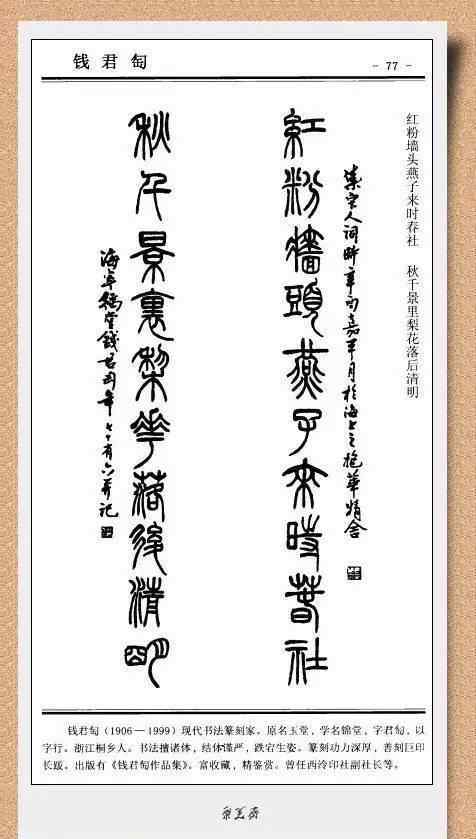 钱君匋
- 77 -
红粉墙头燕子来时春社 秋千景里梨花落后清明
集宋人词时辛酉嘉平月於海上之抱華精舍
紅粉牆頭燕子來時春社
秋千景裏梨華落後清明
豫堂錢君匋年七十有六并记
钱君匋（1906—1999）现代书法篆刻家。原名玉堂，学名锦堂，字君匋，以
字行。浙江桐乡人。书法擅诸体，结体谨严，跌宕生姿。篆刻功力深厚，善刻巨印
长跋。出版有《钱君匋作品集》。富收藏，精鉴赏。曾任西泠印社副社长等。